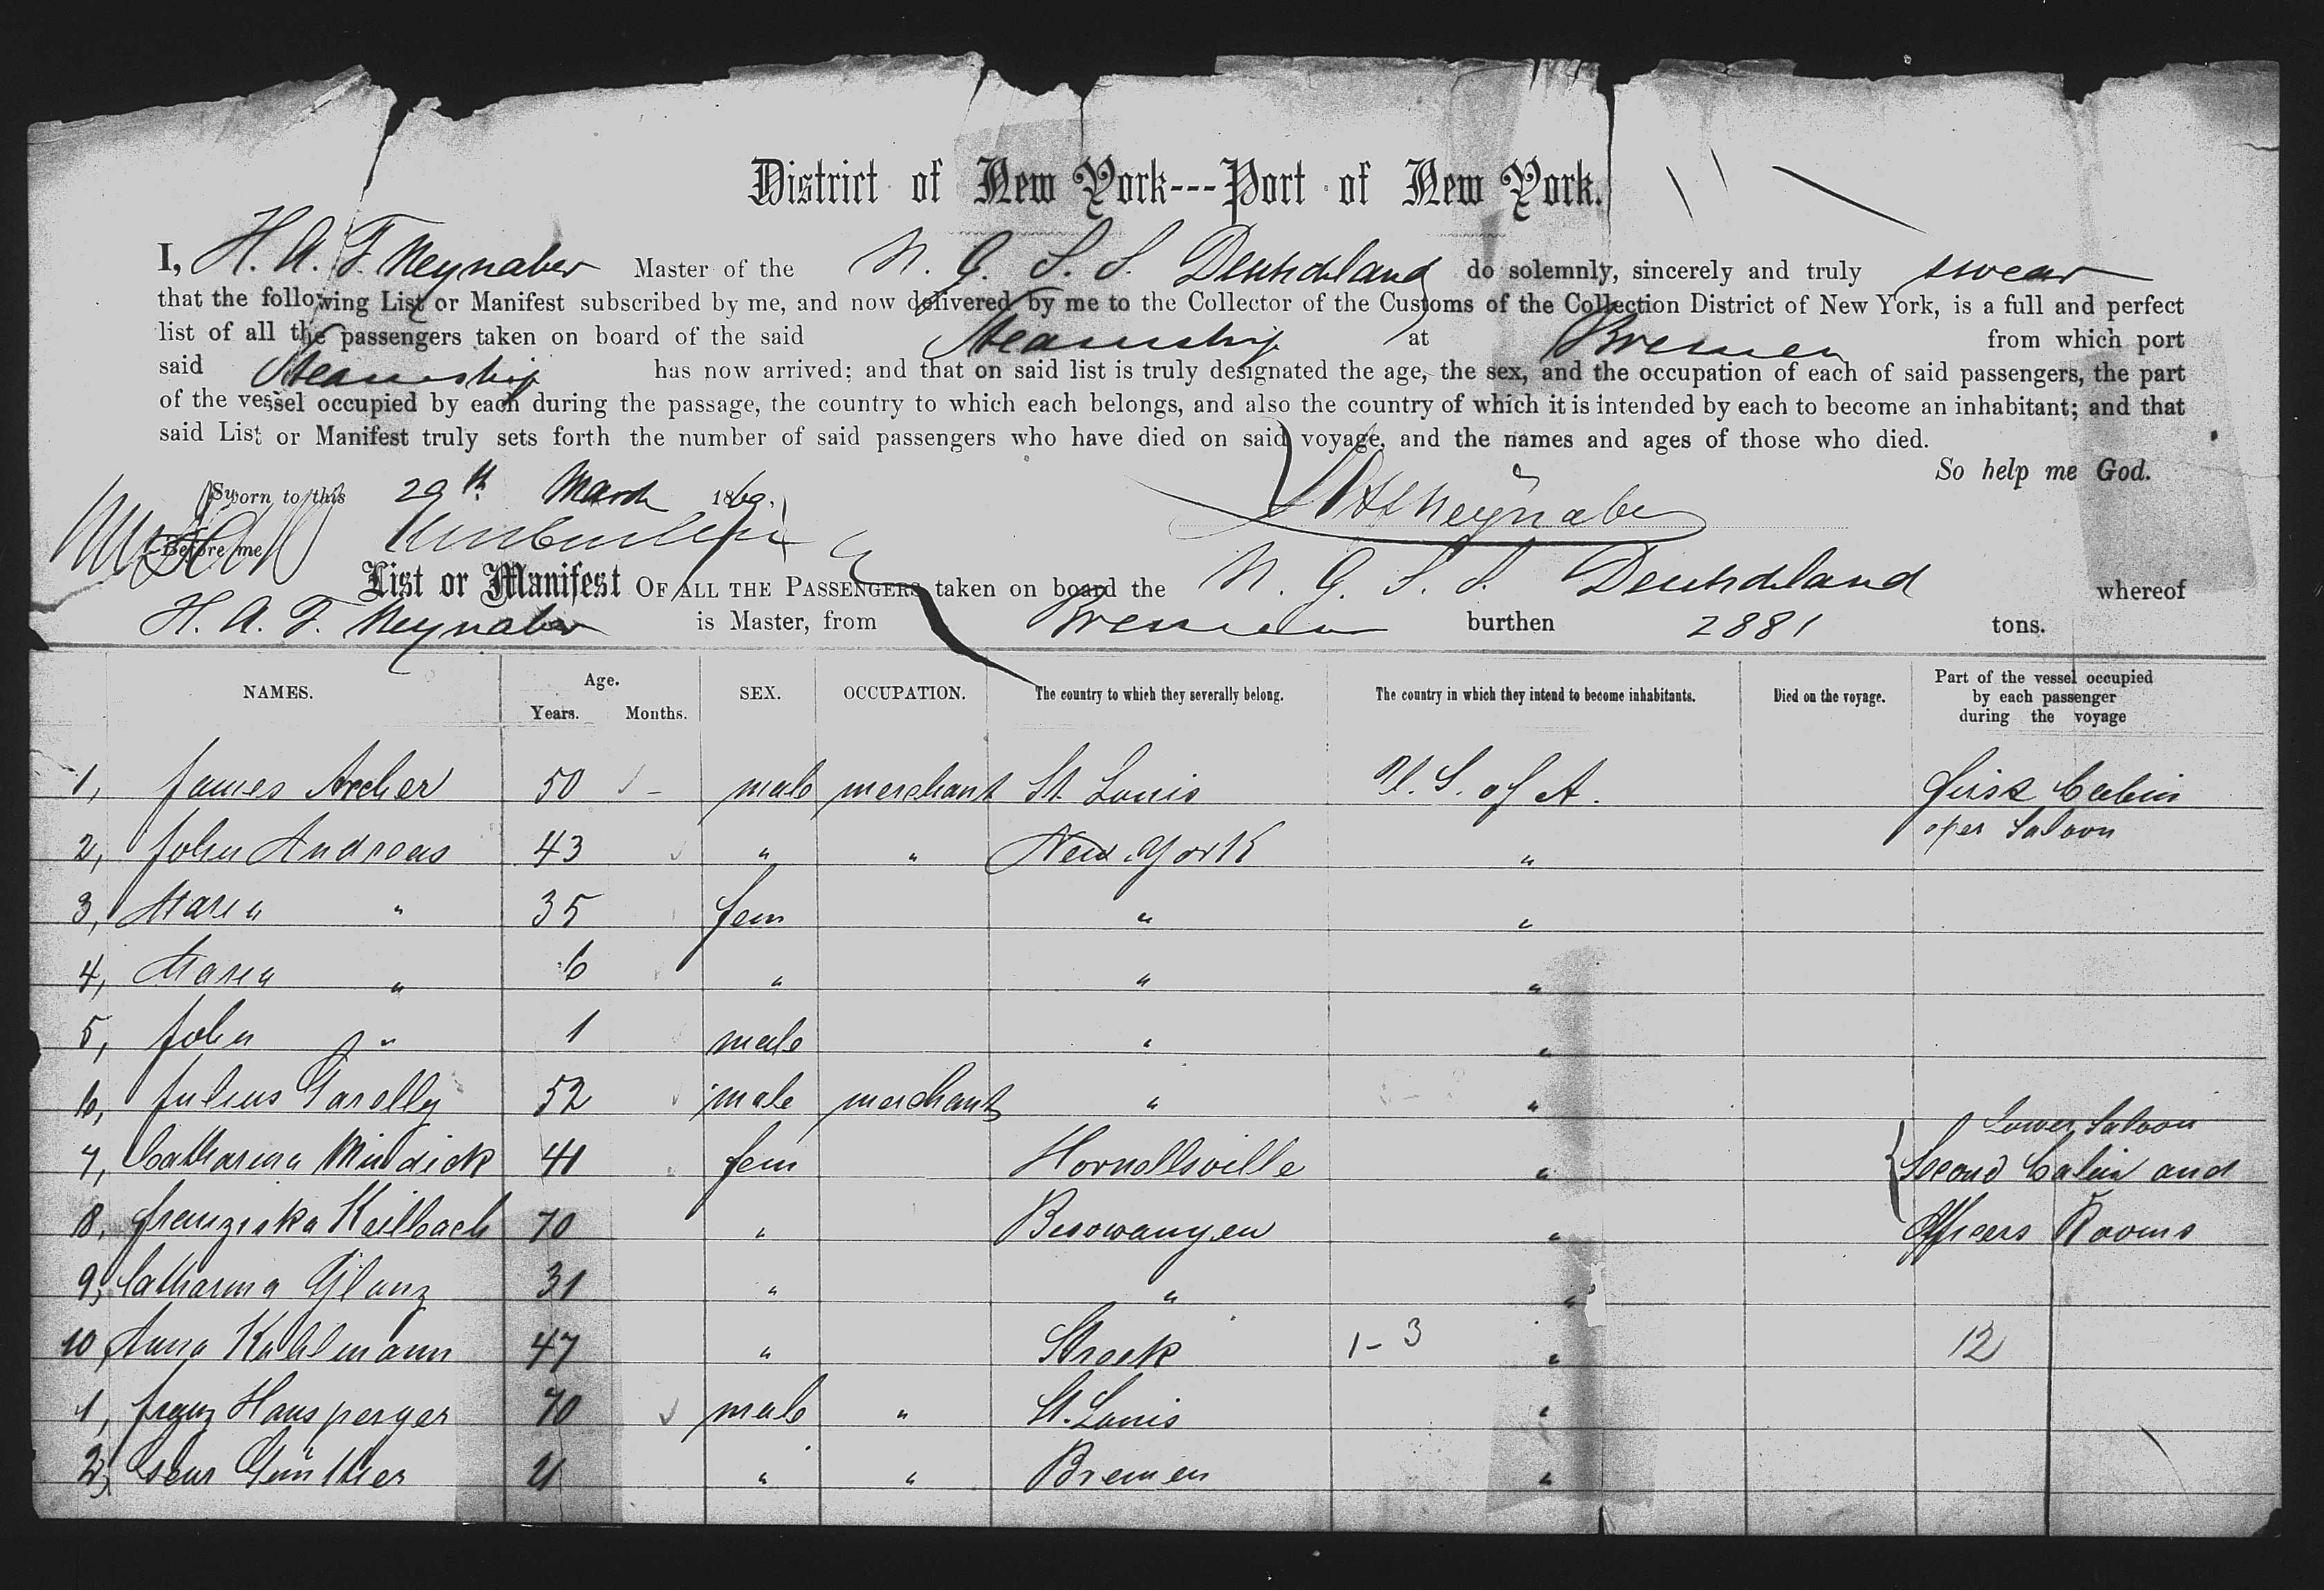 District of New York---Port of New York.
I, H. A. F. Neynaber Master of the N. G. S. S. Deutschland do solemnly, sincerely and truly swear
that the following List or Manifest subscribed by me, and now delivered by me to the Collector of the Customs of the Collection District of New York, is a full and perfect
list of all the passengers taken on board of the said Steamship at Bremen from which port
said Steamship has now arrived; and that on said list is truly designated the age, the sex, and the occupation of each of said passengers, the part
of the vessel occupied by each during the passage, the country to which each belongs, and also the country of which it is intended by each to become an inhabitant; and that
said List or Manifest truly sets forth the number of said passengers who have died on said voyage, and the names and ages of those who died.
So help me God.
Sworn to this 29th March 1869. HAFNeynaber
Before me
List or Manifest OF ALL THE PASSENGERS taken on board the N. G. S. S. Deutschland whereof
H. A. F. Neynaber is Master, from Bremen burthen 2881 tons.
NAMES. Age. Years. Months. SEX. OCCUPATION. The country to which they severally belong. The country in which they intend to become inhabitants. Died on the voyage. Part of the vessel occupied by each passenger during the voyage
1, James Archer 50 - male merchant St. Louis U. S. of A. first Cabin
oper Saloon
2, John Andreas 43 " " New York "
3, Maria " 35 fem " "
4, Maria " 6 " " "
5, John " 1 male " "
6, Julius 52 male merchant " "
Lower Saloon
7, Catharina Mindick 41 fem Hornellsville " Second Cabin and
8, Franziska Keilbach 70 " " Officers Rooms
9, Catharina Glanz 31 " " "
10, Anna Kahlmann 47 " Strock 1-3 " 12
1, Franz Hausperger 70 male " St. Louis "
2, Günther 21 " " Bremen "